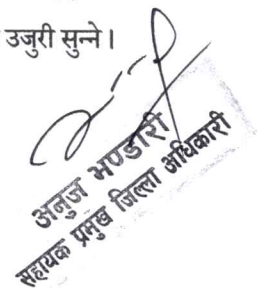 उजुरी सुन्ने।
अनुज भण्डारी
सहायक प्रमुख जिल्ला अधिकारी